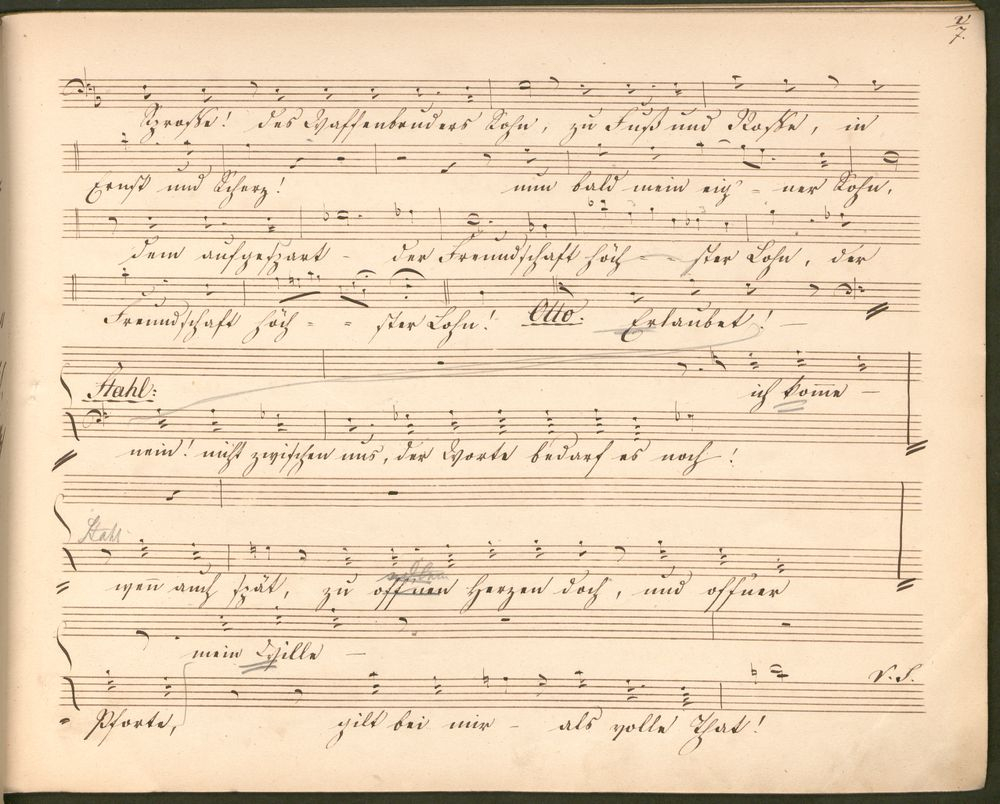 V/7.
Sprosse! des Waffenbruders Sohn, zu Fuß und Rosse, in
Ernst und Scherz! nun bald mein eig - ner Sohn,
dem aufgespart - der Freundschaft höch - - ster Lohn, der
Freundschaft höch - - ster Lohn! Otto: Erlaubet! -
Stahl: ich kom̄e -
nein! nicht zwischen uns, der Worte bedarf es noch!
Stahl
wen̄ auch spät, zu offnen Herzen doch, und offner
mein Wille -
Pforte, gilt bei mir - als volle That!
V. S.